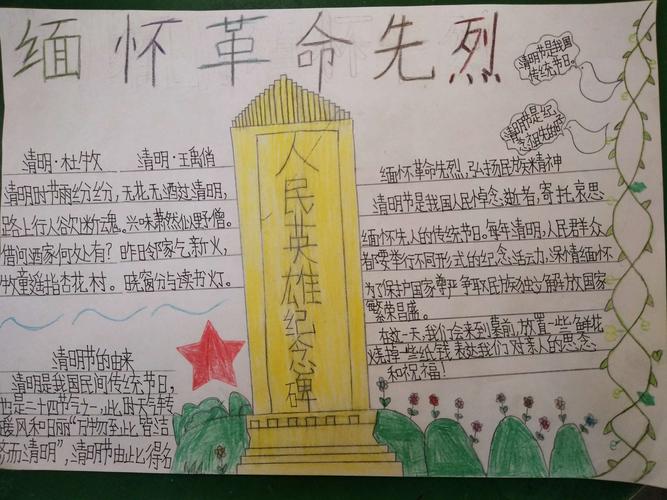 缅怀革命先烈
清明节是我国
传统节日。
清明节是纪
念祖先的
清明·杜牧
清明时节雨纷纷,
路上行人欲断魂。
借问酒家何处有?
牧童遥指杏花村。
清明·王禹偁
无花无酒过清明,
兴味萧然似野僧。
昨日邻家乞新火,
晓窗分与读书灯。
人民英雄纪念碑
缅怀革命先烈,弘扬民族精神
清明节是我国人民悼念逝者,寄托哀思
缅怀先人的传统节日。每年清明,人民群众
都要举行不同形式的纪念活动,深情缅怀
为了保护国家尊严争取民族独立解放国家
繁荣昌盛。
在这一天,我们会来到墓前,放置一些鲜花
烧掉一些纸钱,表达我们对亲人的思念
和祝福!
清明节的由来
清明是我国民间传统节日,
也是二十四节气之一,此时天气转
暖风和日丽"万物至此皆洁
而清明",清明节由此得名